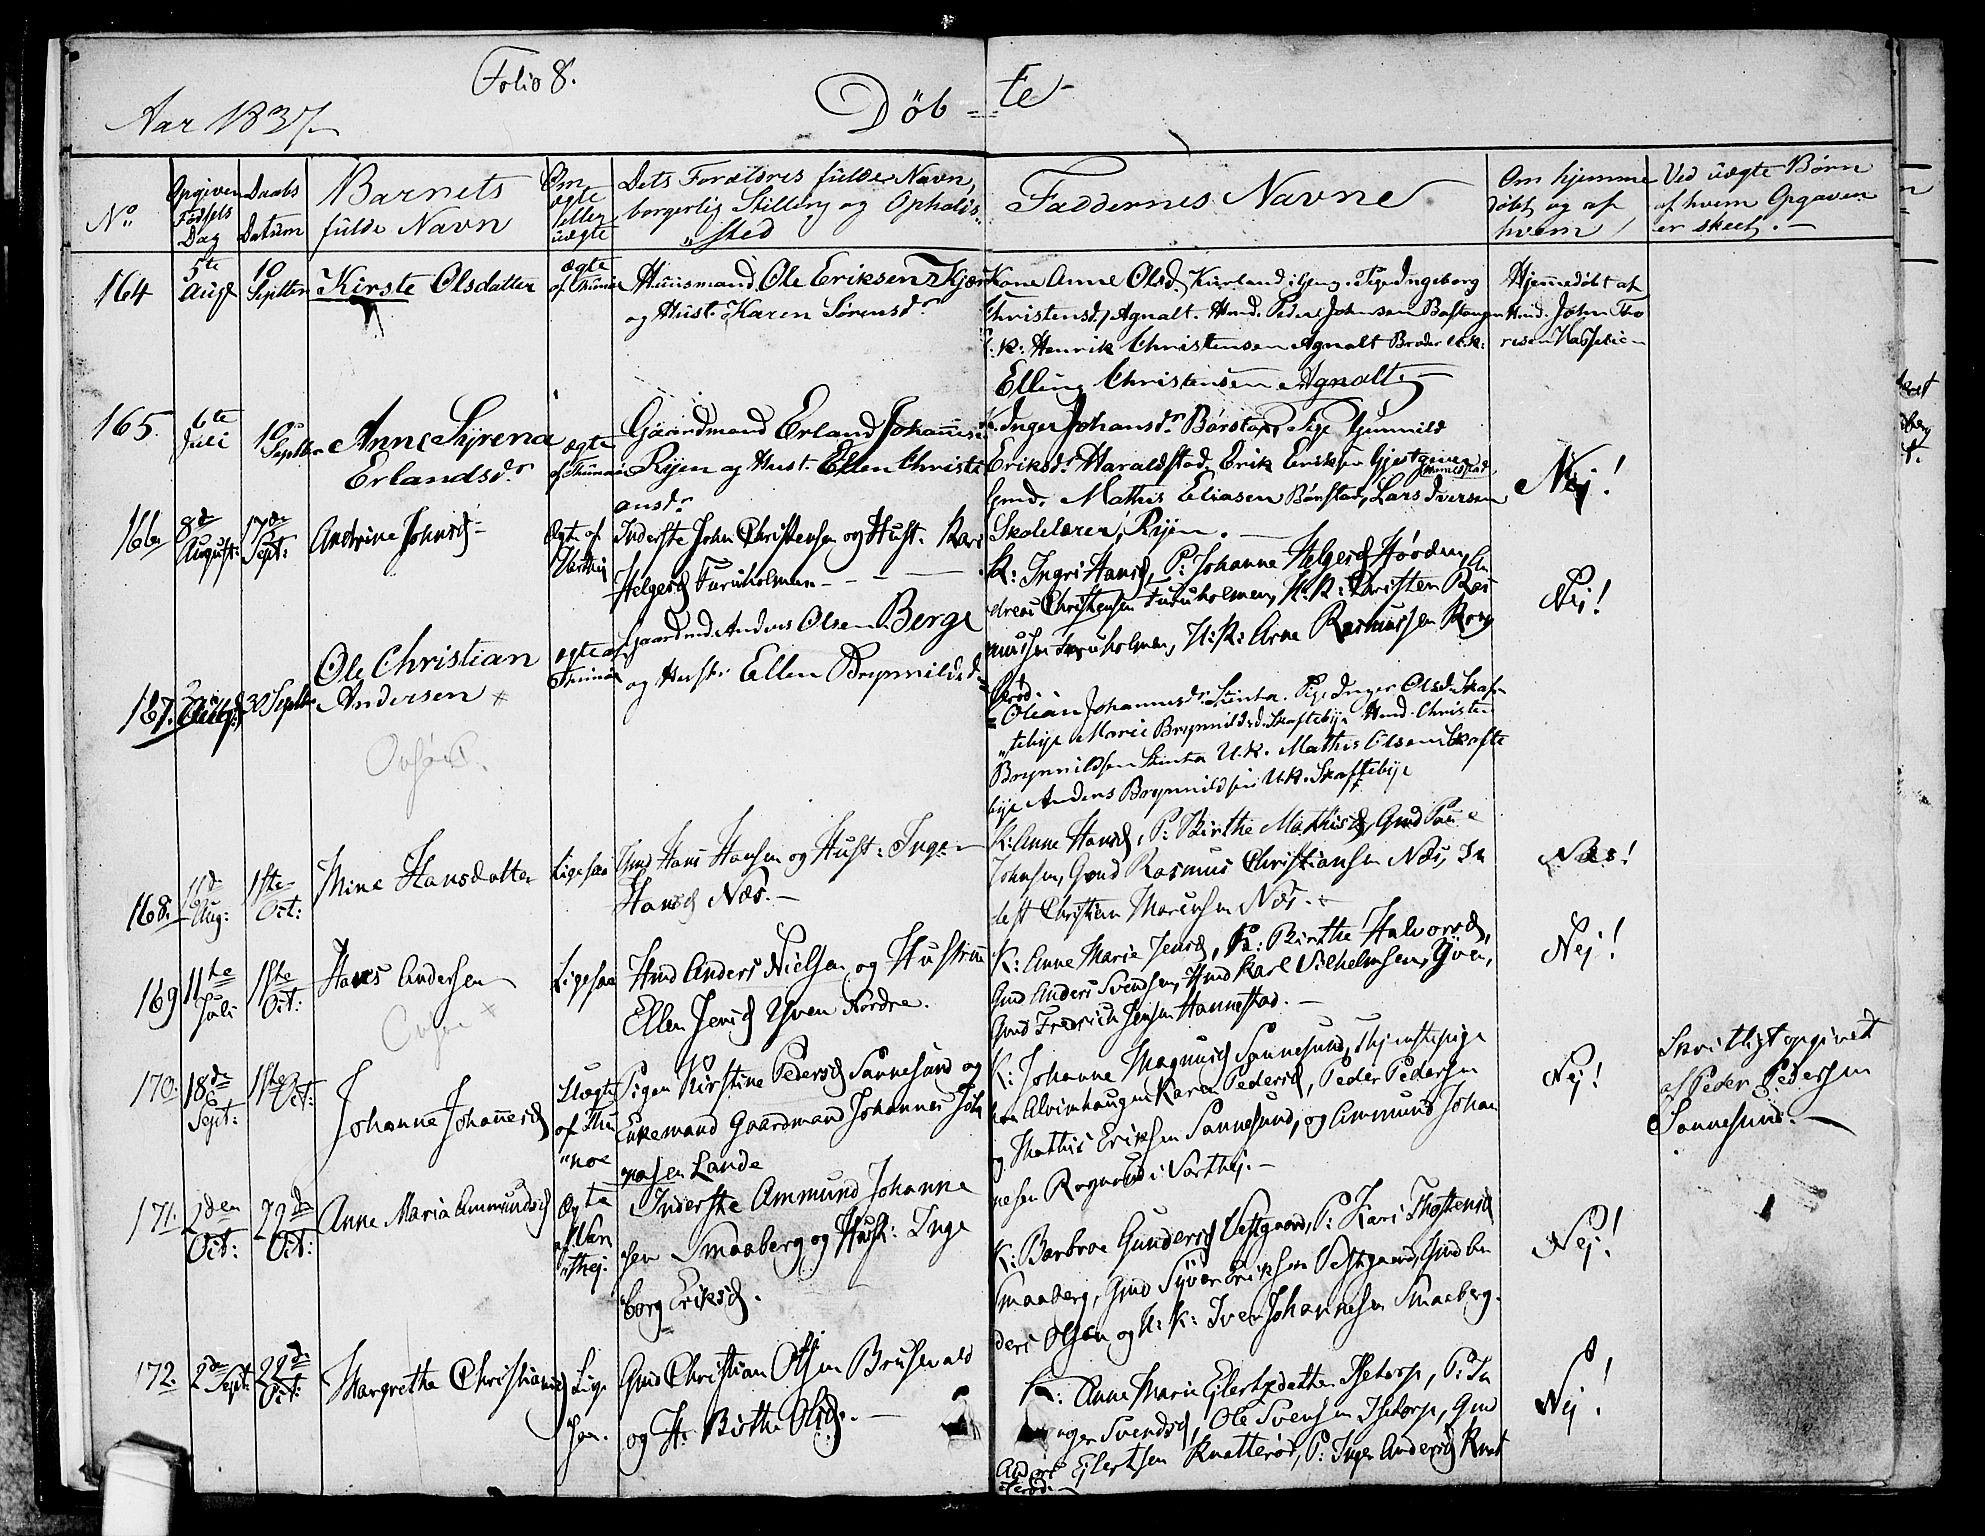 Folio 8.
Aar 1837
Døb = te
No.
Opgiven Fødsels Dag
Daabs Datum
Barnets fulde Navn
Om ægte eller uægte
Dets Forældres fulde Navn, borgerlig Stilling og Opholds-sted
Faddernes Navne
Om hjemmedøbt og af hvem
Ved uægte Børn af hvem Opgaven er skeet.
164
5te Aug
10 Septbr
Kirste Olsdatter
ægte af Thunøe
Huusmand Ole Eriksen
og Hust. Karen Sørensdr
Kone Anne Olsd. Pige Ingeborg
Christensd. Agnalt. Hmd. Peder Johnsen
U:K: Henrik Christensen Agnalt Broder U.K.
Elling Christensen Agnalt
Hjemmedøbt af
Hmd. John Tho
resen
165.
6te Juli
10 Septbr
Anne Syrena
Erlandsdr
ægte af Thunøe
Gaardmand Erland Johannes:
Ryen og Hust. Ellen Christi
ansdr
K. Inger Johansdr Børstad, Pige Gunnild
Eriksdr Haralstad, Erik Eriksen Gjestgiver
Gmd. Mathis Eliasen Børstad, Lars Iversen
Skolelærer, Ryen.
Nej!
166
8de August:
17de Sept:
Andrine Johnsd
Ægte af Varthej
Inderste John Christensen og Hust: Kari
Helgesd Furuholmen
K: Ingri Hansd, P: Johanne Helgesd Høoden, An
dreas Christensen Furuholmen, U:K: Christen Ras
mussen Furuholmen, U:K: Arne Rasmussen Rong
lerød.
Nej!
167.
30 Septbr
Ole Christian
Andersen
Ovført.
ægte af Thunøe
Gaardmd. Anders Olsen Berge
og Hustr: Ellen Brynnildsd
Olian Johannesdr Stenta. Pige Inger Olsd. Skaf-
tebye Marie Brynnildsd. Skaftebye Hmd. Christen
Brynnildsen Stenta U.K. Mathis Olsen Skafte
bye Anders Brynnildsen U.K. Skaftebye
168.
11de Aug:
1ste Oct:
Mine Hansdatter
Ligesaa
Gmd Hans Hansen og Hust: Inger
Hansd Næs.
K: Anne Hansd, P: Birthe Mathisd, Gmd
Johnsen, Gmd Rasmus Christiansen Næs, In
derst Christian Mareusen Næs.
169
11te Juli
1ste Oct:
Hans Andersen
Ligesaa
Hmd Anders Nielsen og Hustru
Ellen Jensd Yven Nordre.
K: Anne Marie Jensd, K: Birthe Halvorsd,
Gmd Anders Svendsen, Hmd Karl Vilhelmsen, Yven,
Gmd Fredrich Jensen Hannestad.
Nej!
170.
18de Sept:
1ste Oct:
Johanne Johannesd
Uægte af Thu
noe
Pigen Kirstine Pedersd Sannesund og
Enkemand Gaardmand Johannes Joh
nasen Lande
K: Johanne Magnusd Sannesund, Thjenstepige
hos Alvimhaugen Karen Pedersd, Peder Pedersen
og Mathis Eriksen Sannesund, og Ammund Johan
nesen Rognerud i Varthej.
Nej!
Skriftligt opgivet
af Peder Pedersen
Sannesund.
171.
2den Oct:
22de Oct:
Anne Maria Ammundsd
Ægte af Var
thej.
Inderste Ammund Johanne
sen Smaaberg og Hust: Inge
borg Eriksd.
K: Barbroe Gundersd Vestgaard, P: Kari Thostensd
Smaaberg, Gmd Syver Eriksen Vestgaard, Gmd An
ders Olsen og U:K: Iver Johannesen Smaaberg.
Nej!
172.
2de Sept:
22de Oct:
Margrethe Christiansd
Lige
saa.
Gmd Christian Olsen Brusevald
og H: Birthe Olsd.
K: Anne Marie Ejlertsdatter Isetorp, P: In
ger Svendsd, Ole Svensen Isetorp, Gmd
Anders Ejlertsen Knatterød, P: Inger Andersd Knat
terød.
Nej!